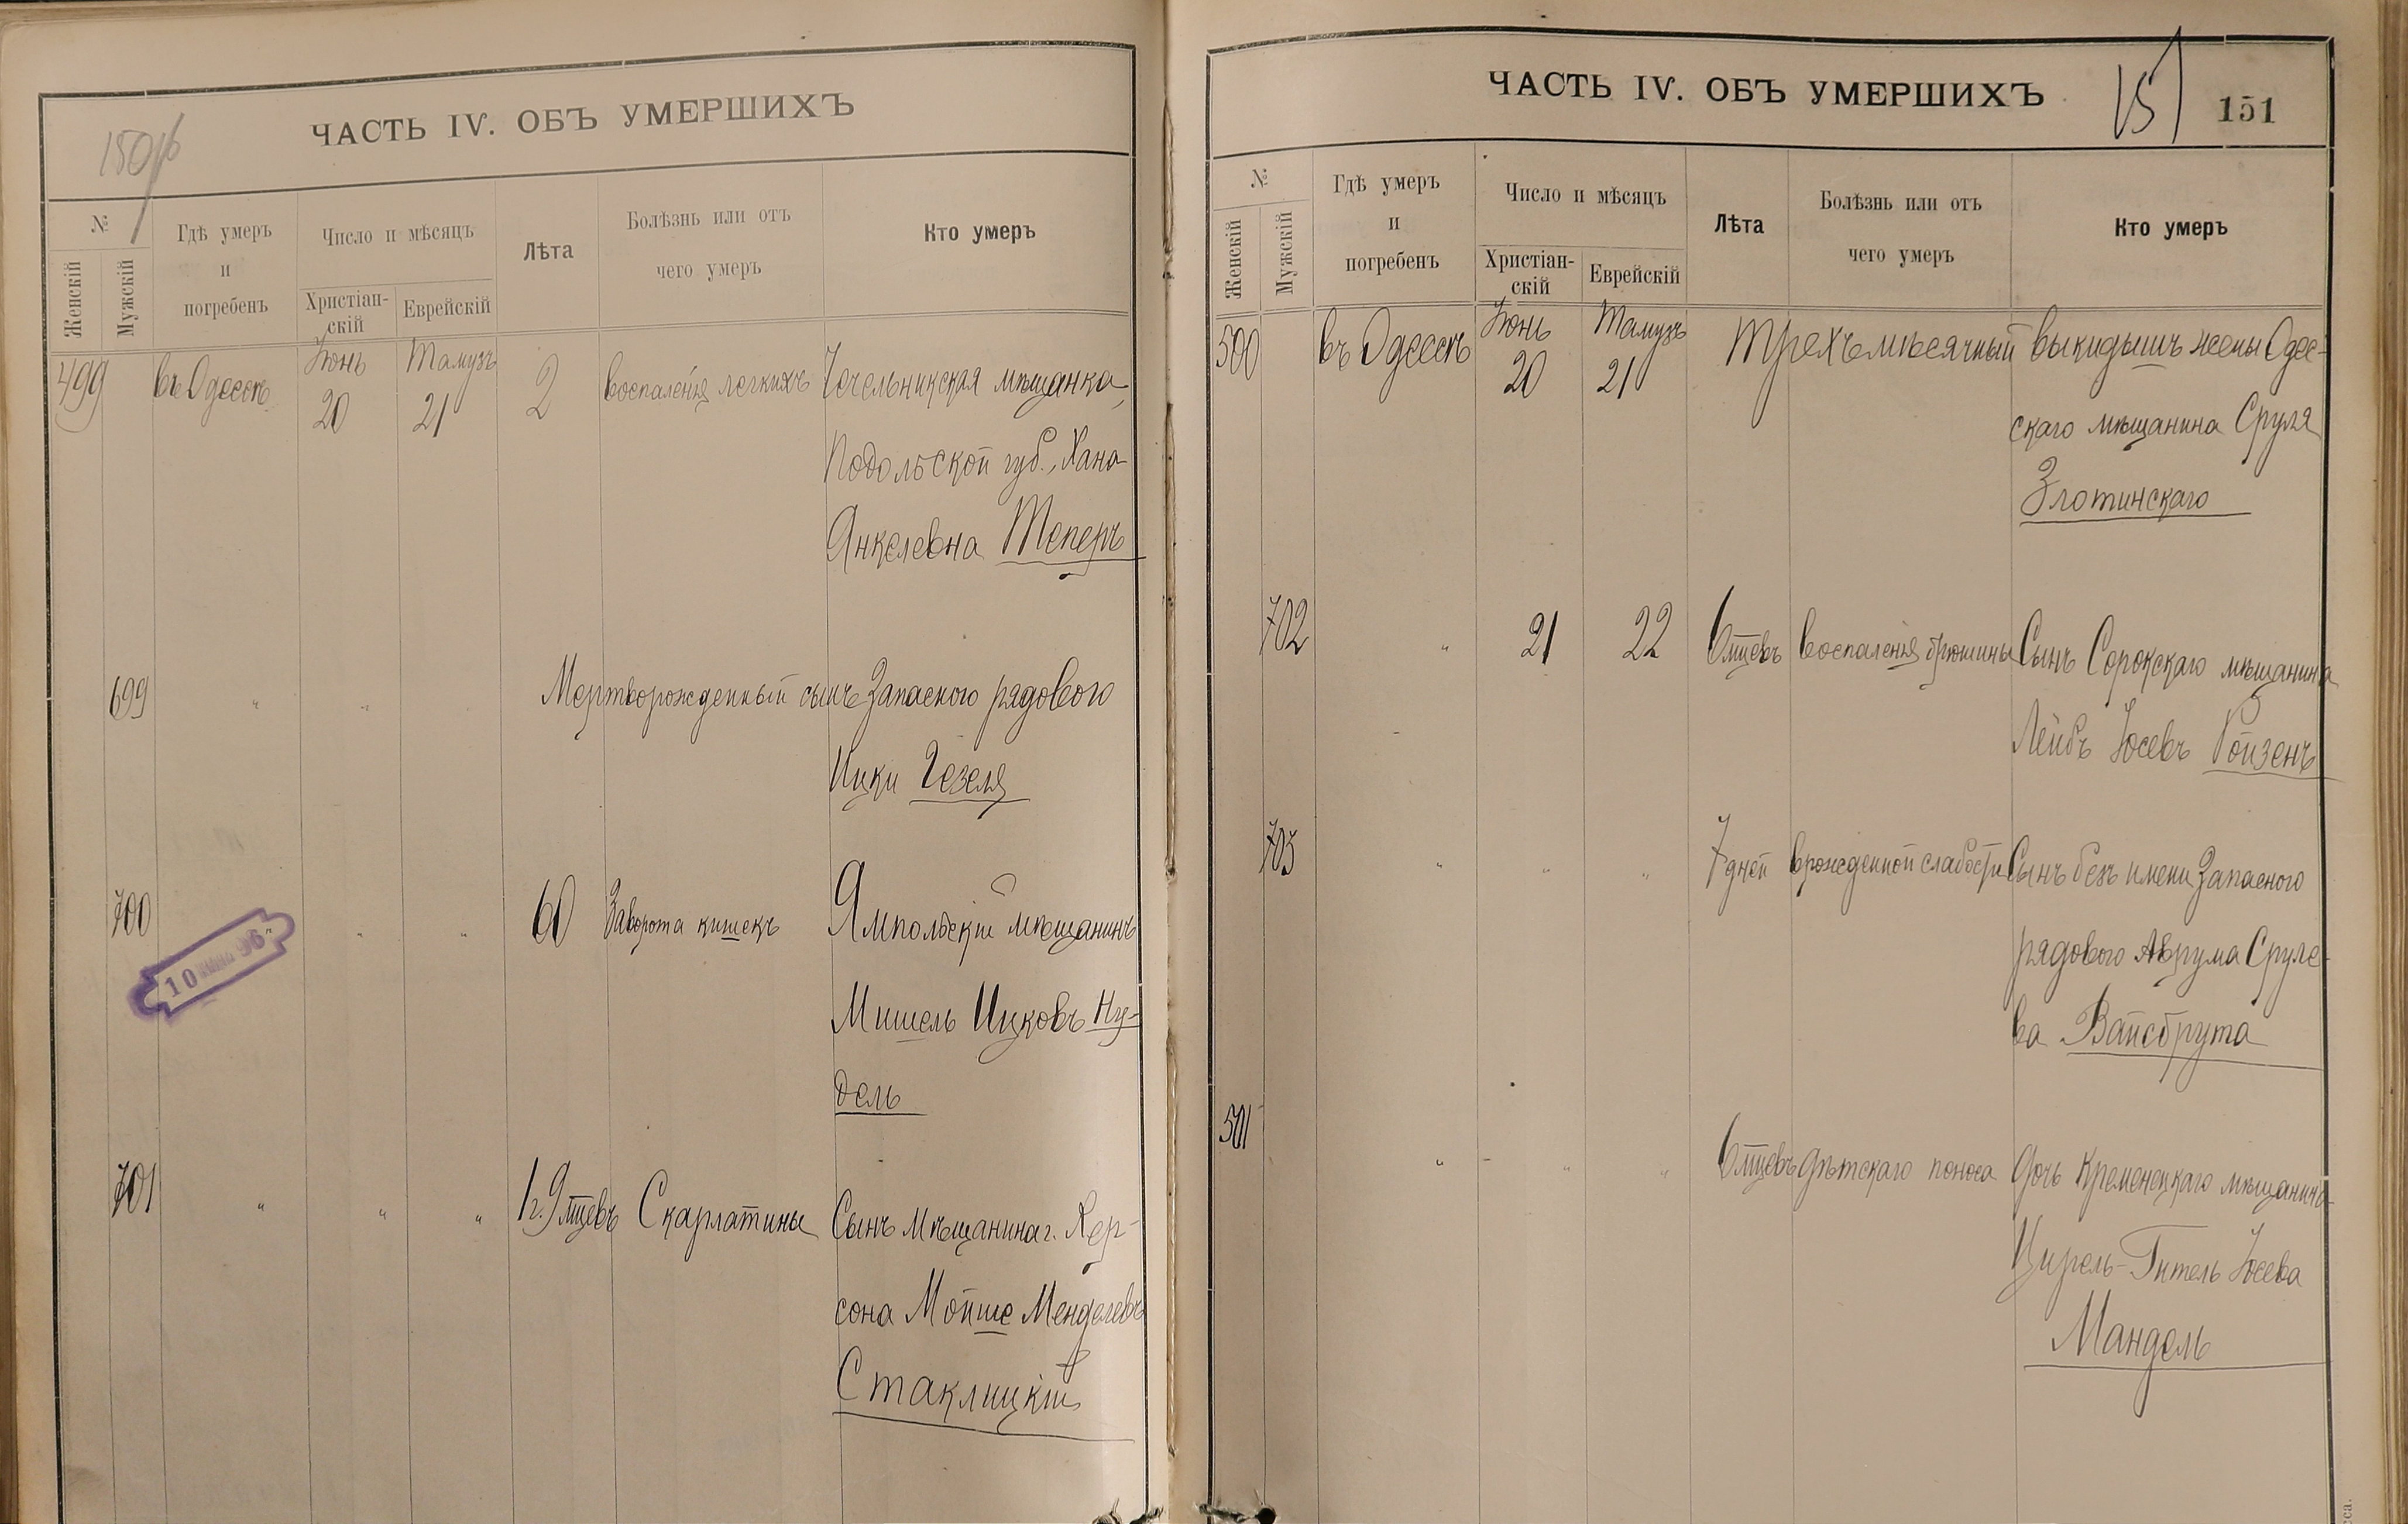 150об
ЧАСТЬ IV. ОБЪ УМЕРШИХЪ
№
Женскій
Мужскій
Гдѣ умеръ
и
погребенъ
Число и мѣсяцъ
Христіан-
скій
Еврейскій
Лѣта
Болѣзнь или отъ
чего умеръ
Кто умеръ
499 въ Одессѣ Іюнь 20 Тамузъ 21 2 воспаленія легкихъ мѣщанка,
Подольской губ., Хана
Янкелевна Теперъ
699 " " Мертворожденный сынъ Запасного рядового
Ицки Гезеля
700 " " " 60 Заворота кишекъ Ямпольскій мѣщанинъ
10 96
Мишель Ицковъ Ну-
дель
701 " " " 1 г. 9 мцевъ Скарлатины Сынъ мѣщанина г. Хер-
сона Мойше Менделевъ
Стаклицкій
ЧАСТЬ IV. ОБЪ УМЕРШИХЪ
151
151
№
Женскій
Мужскій
Гдѣ умеръ
и
погребенъ
Число и мѣсяцъ
Христіан-
скій
Еврейскій
Лѣта
Болѣзнь или отъ
чего умеръ
Кто умеръ
500 въ Одессѣ Іюнь 20 Тамузъ 21 Трехъмѣсячный выкидышъ жены Одес-
скаго мѣщанина Сруля
Злотинскаго
702 " 21 22 6 мцевъ воспаленія брюшины Сынъ Сорокскаго мѣщанина
Лейбъ Іосевъ Ройзенъ
703 " " " 7 дней врожденной слабости Сынъ безъ имени Запасного
рядового Аврума Сруле-
ва Вайсбрута
501 " " " 6 мцевъ дѣтскаго поноса Дочь Кременецкаго мѣщанина
Цирель-Гитель Іосева
Мандель